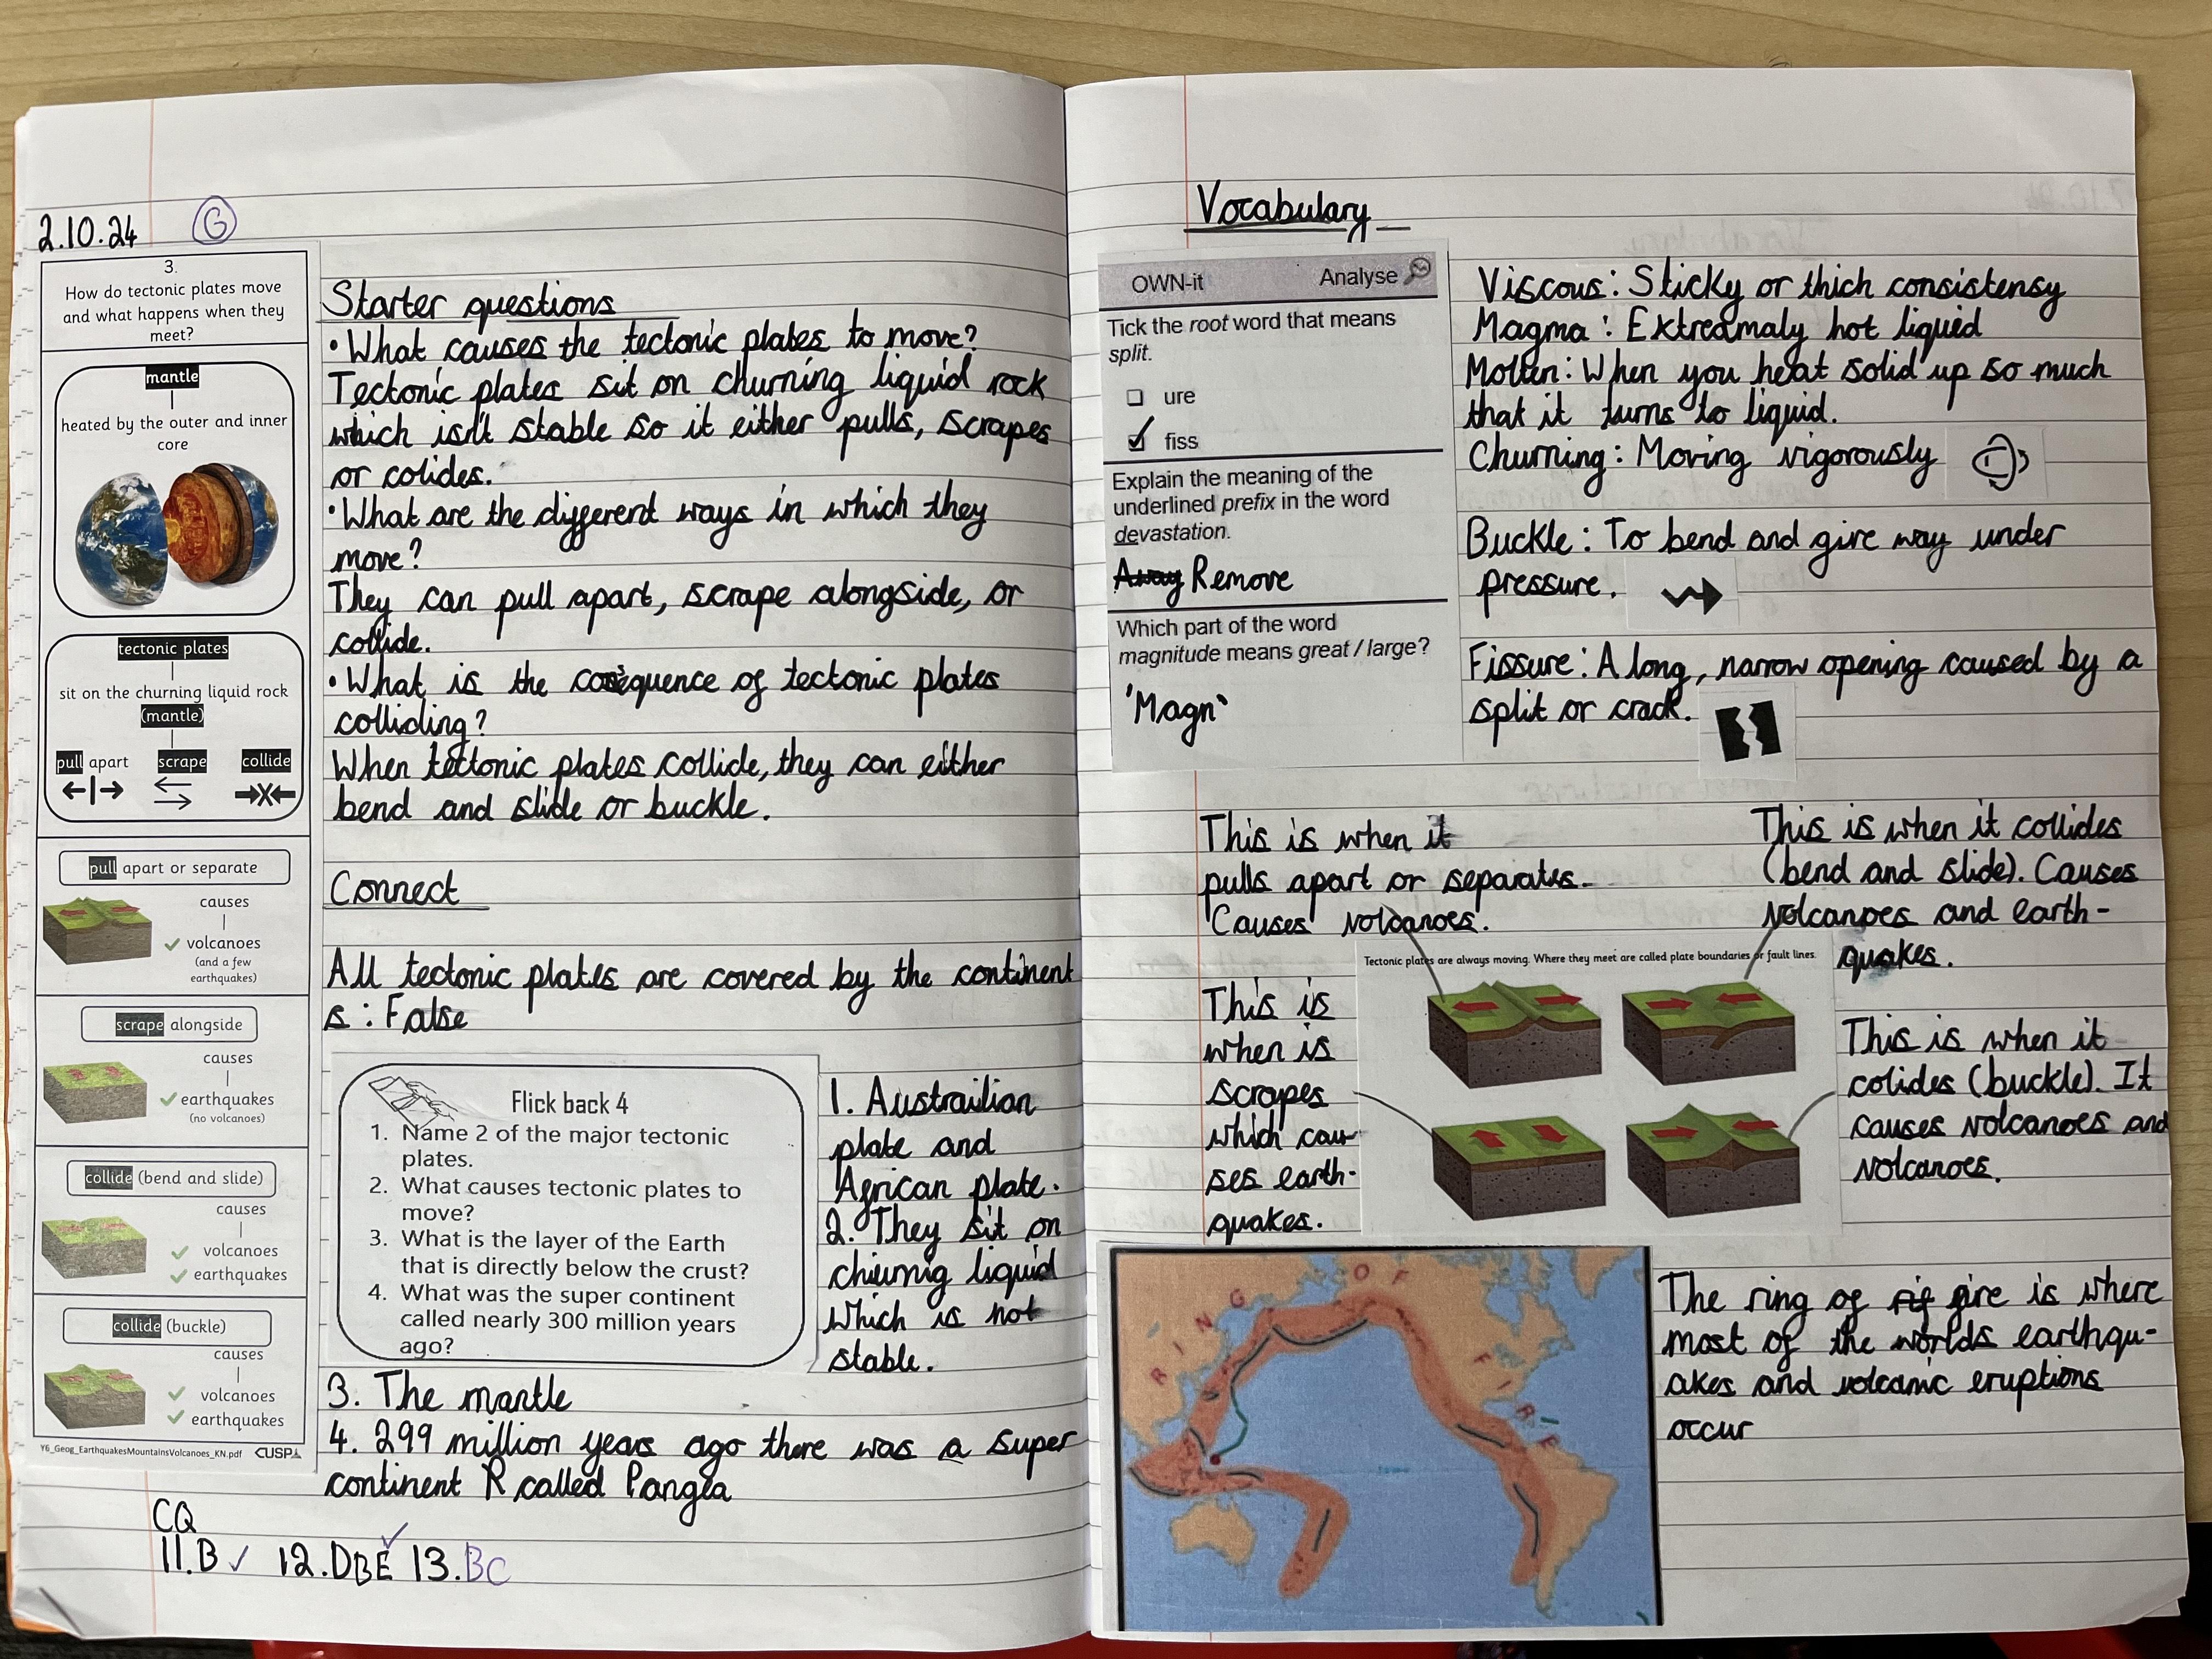 2.10.24
G
3.
How do tectonic plates move
and what happens when they
meet?
mantle
heated by the outer and inner
core
tectonic plates
sit on the churning liquid rock
(mantle)
pull apart scrape collide
pull apart or separate
causes
volcanoes
(and a few
earthquakes)
scrape alongside
causes
earthquakes
(no volcanoes)
collide (bend and slide)
causes
volcanoes
earthquakes
collide (buckle)
causes
volcanoes
earthquakes
Y6_Geog_EarthquakesMountainsVolcanoes_KN.pdf CUSP
Starter questions
•What causes the tectonic plates to move?
Tectonic plates sit on churning liquid rock
which isn't stable so it either pulls, scrapes
or colides.
•What are the different ways in which they
move?
They can pull apart, scrape alongside, or
collide.
•What is the cosequence of tectonic plates
colliding?
When tectonic plates collide, they can either
bend and slide or buckle.
Connect
All tectonic plates are covered by the continent
s : False
Flick back 4
1. Name 2 of the major tectonic
plates.
2. What causes tectonic plates to
move?
3. What is the layer of the Earth
that is directly below the crust?
4. What was the super continent
called nearly 300 million years
ago?
1. Austrailian
plate and
African plate.
2. They sit on
chiurnig liquid
which is not
stable.
3. The mantle
4. 299 million years ago there was a super
continent R called Pangea
CQ
11.B ✓ 12.DBE ✓ 13.BC
Vocabulary
OWN-it Analyse
Tick the root word that means
split.
ure
fiss
Explain the meaning of the
underlined prefix in the word
devastation.
Away Remove
Which part of the word
magnitude means great / large?
'Magn'
Viscous: Sticky or thich consistency
Magma : Extreamaly hot liquid
Molten: When you heat solid up so much
that it turns to liquid.
Churning: Moving vigorously
Buckle: To bend and give way under
pressure.
Fissure: A long, narrow opening caused by a
split or crack.
This is when it
pulls apart or separates.
Causes volcanoes.
This is when it collides
(bend and slide). Causes
volcanoes and earth-
quakes.
Tectonic plates are always moving. Where they meet are called plate boundaries or fault lines.
This is
when is
scrapes
which cau-
ses earth-
quakes.
This is when it
colides (buckle). It
causes volcanoes and
volcanoes.
RING OF FIRE
The ring of rif fire is where
most of the worlds earthqu-
akes and volcanic eruptions
occur